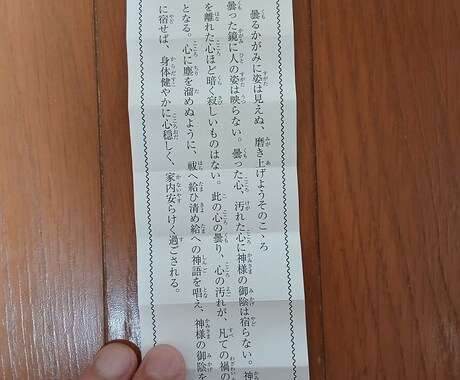 曇るかがみに姿は見えぬ、磨き上げようそのこゝろ
曇った鏡に人の姿は映らない。曇った心、汚れた心に神様の御陰は宿らない。神
を離れた心ほど暗く寂しいものはない。此の心の曇り、心の汚れが、凡ての禍の
となる。心に塵を溜めぬように、祓へ給ひ清め給への神語を唱え、神様の御陰を
に宿せば、身体健やかに心穏しく、家内安らけく過ごされる。